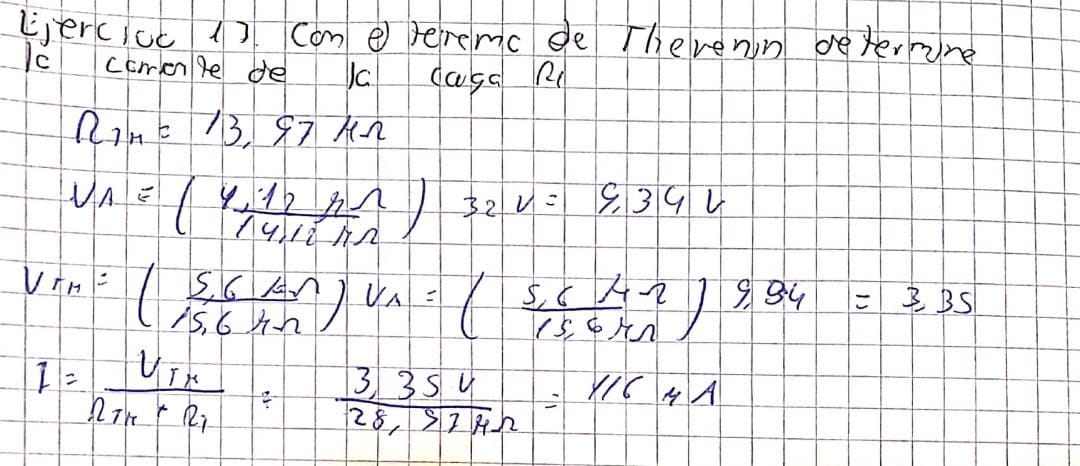 Ejercicio 17. Con el teorema de Thevenin determine
la corriente de la carga R1
RTH = 13,97 kΩ
VA = (4,12 kΩ / 14,12 kΩ) 32 V = 9,34 V
VTH = (5,6 kΩ / 15,6 kΩ) VA = (5,6 kΩ / 15,6 kΩ) 9,94 = 3,35
I = VTH / RTH + R1 = 3,35 V / 28,97 kΩ = 116 μA